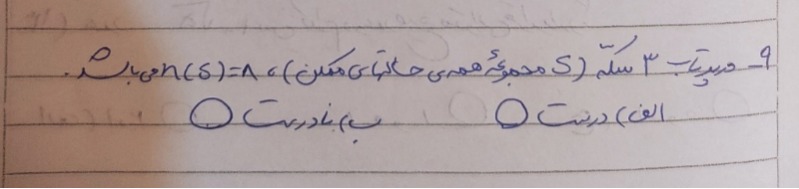 ۹- در پرتاب ۳ سکه (S مجموعهٔ همه‌ی حالتهای ممکن)، n(S)=۸ می باشد.
الف) درست ○ ب) نادرست ○